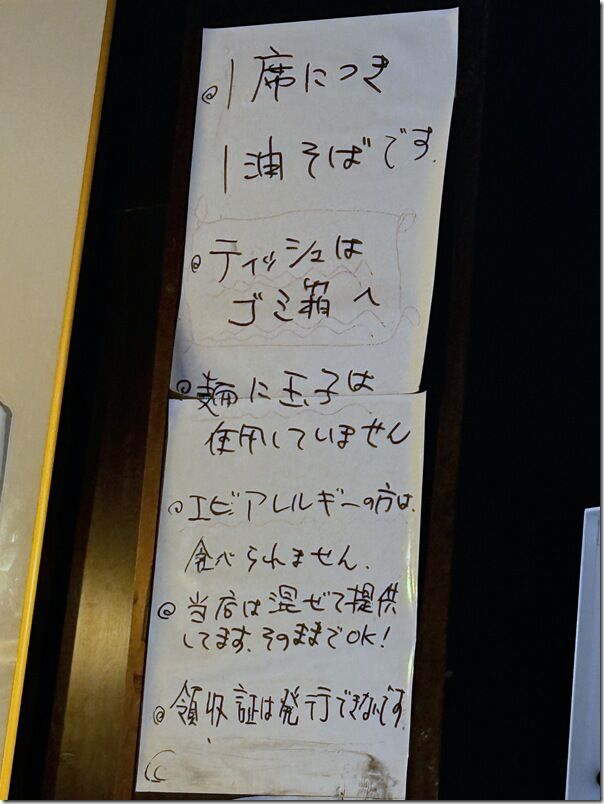 @1席につき
1油そばです.
@ティッシュは
ゴミ箱へ
@麺に玉子は
使用していません
@エビアレルギーの方は.
食べられません.
@当店は混ぜて提供
してます.そのままでOK!
@領収証は発行できないです.